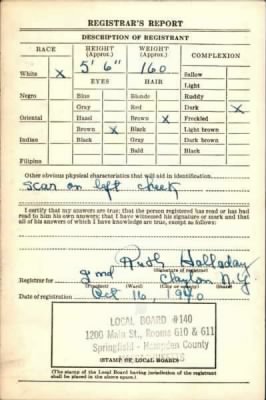 REGISTRAR'S REPORT
DESCRIPTION OF REGISTRANT
RACE HEIGHT (Approx.) WEIGHT (Approx.) COMPLEXION
5' 6" 160
White X Sallow
EYES HAIR Light
Negro Blue Blonde Ruddy
Gray Red Dark X
Oriental Hazel Brown X Freckled
Brown X Black Light brown
Indian Black Gray Dark brown
Bald Black
Filipino
Other obvious physical characteristics that will aid in identification
scar on left cheek
I certify that my answers are true; that the person registered has read or has had
read to him his own answers; that I have witnessed his signature or mark and that all
of his answers of which I have knowledge are true, except as follows:
Ruth Halladay
(Signature of registrar)
Registrar for 2nd Clayton N.Y.
(Precinct) (Ward) (City or county) (State)
Date of registration Oct 16, 1940
LOCAL BOARD #140
1200 Main St., Rooms 610 & 611
Springfield - Hampden County
(STAMP OF LOCAL BOARD)
(The stamp of the Local Board having jurisdiction of the registrant
shall be placed in the above space.)